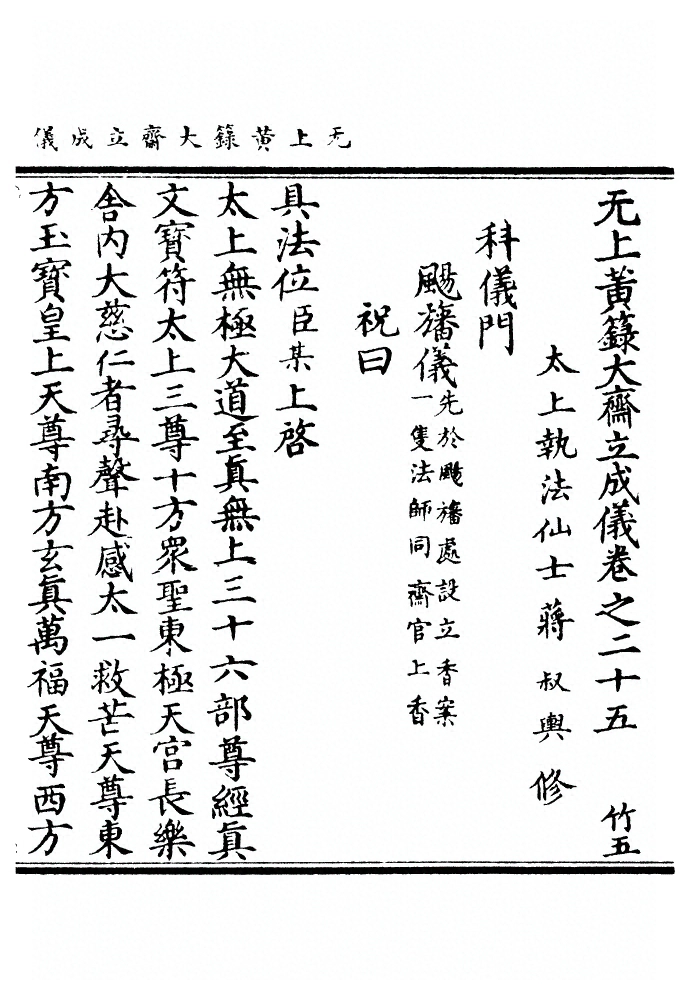 无上黃籙大齋立成儀
无上黃籙大齋立成儀卷之二十五 竹五
太上執法仙士蔣叔輿修
科儀門
颺旛儀先於颺旛處設立香案
一隻法師同齋官上香
祝曰
具法位臣某上啓
太上無極大道至眞無上三十六部尊經眞
文寶符太上三尊十方眾聖東極天宮長樂
舍內大慈仁者尋聲赴感太一救苦天尊東
方玉寶皇上天尊南方玄眞萬福天尊西方